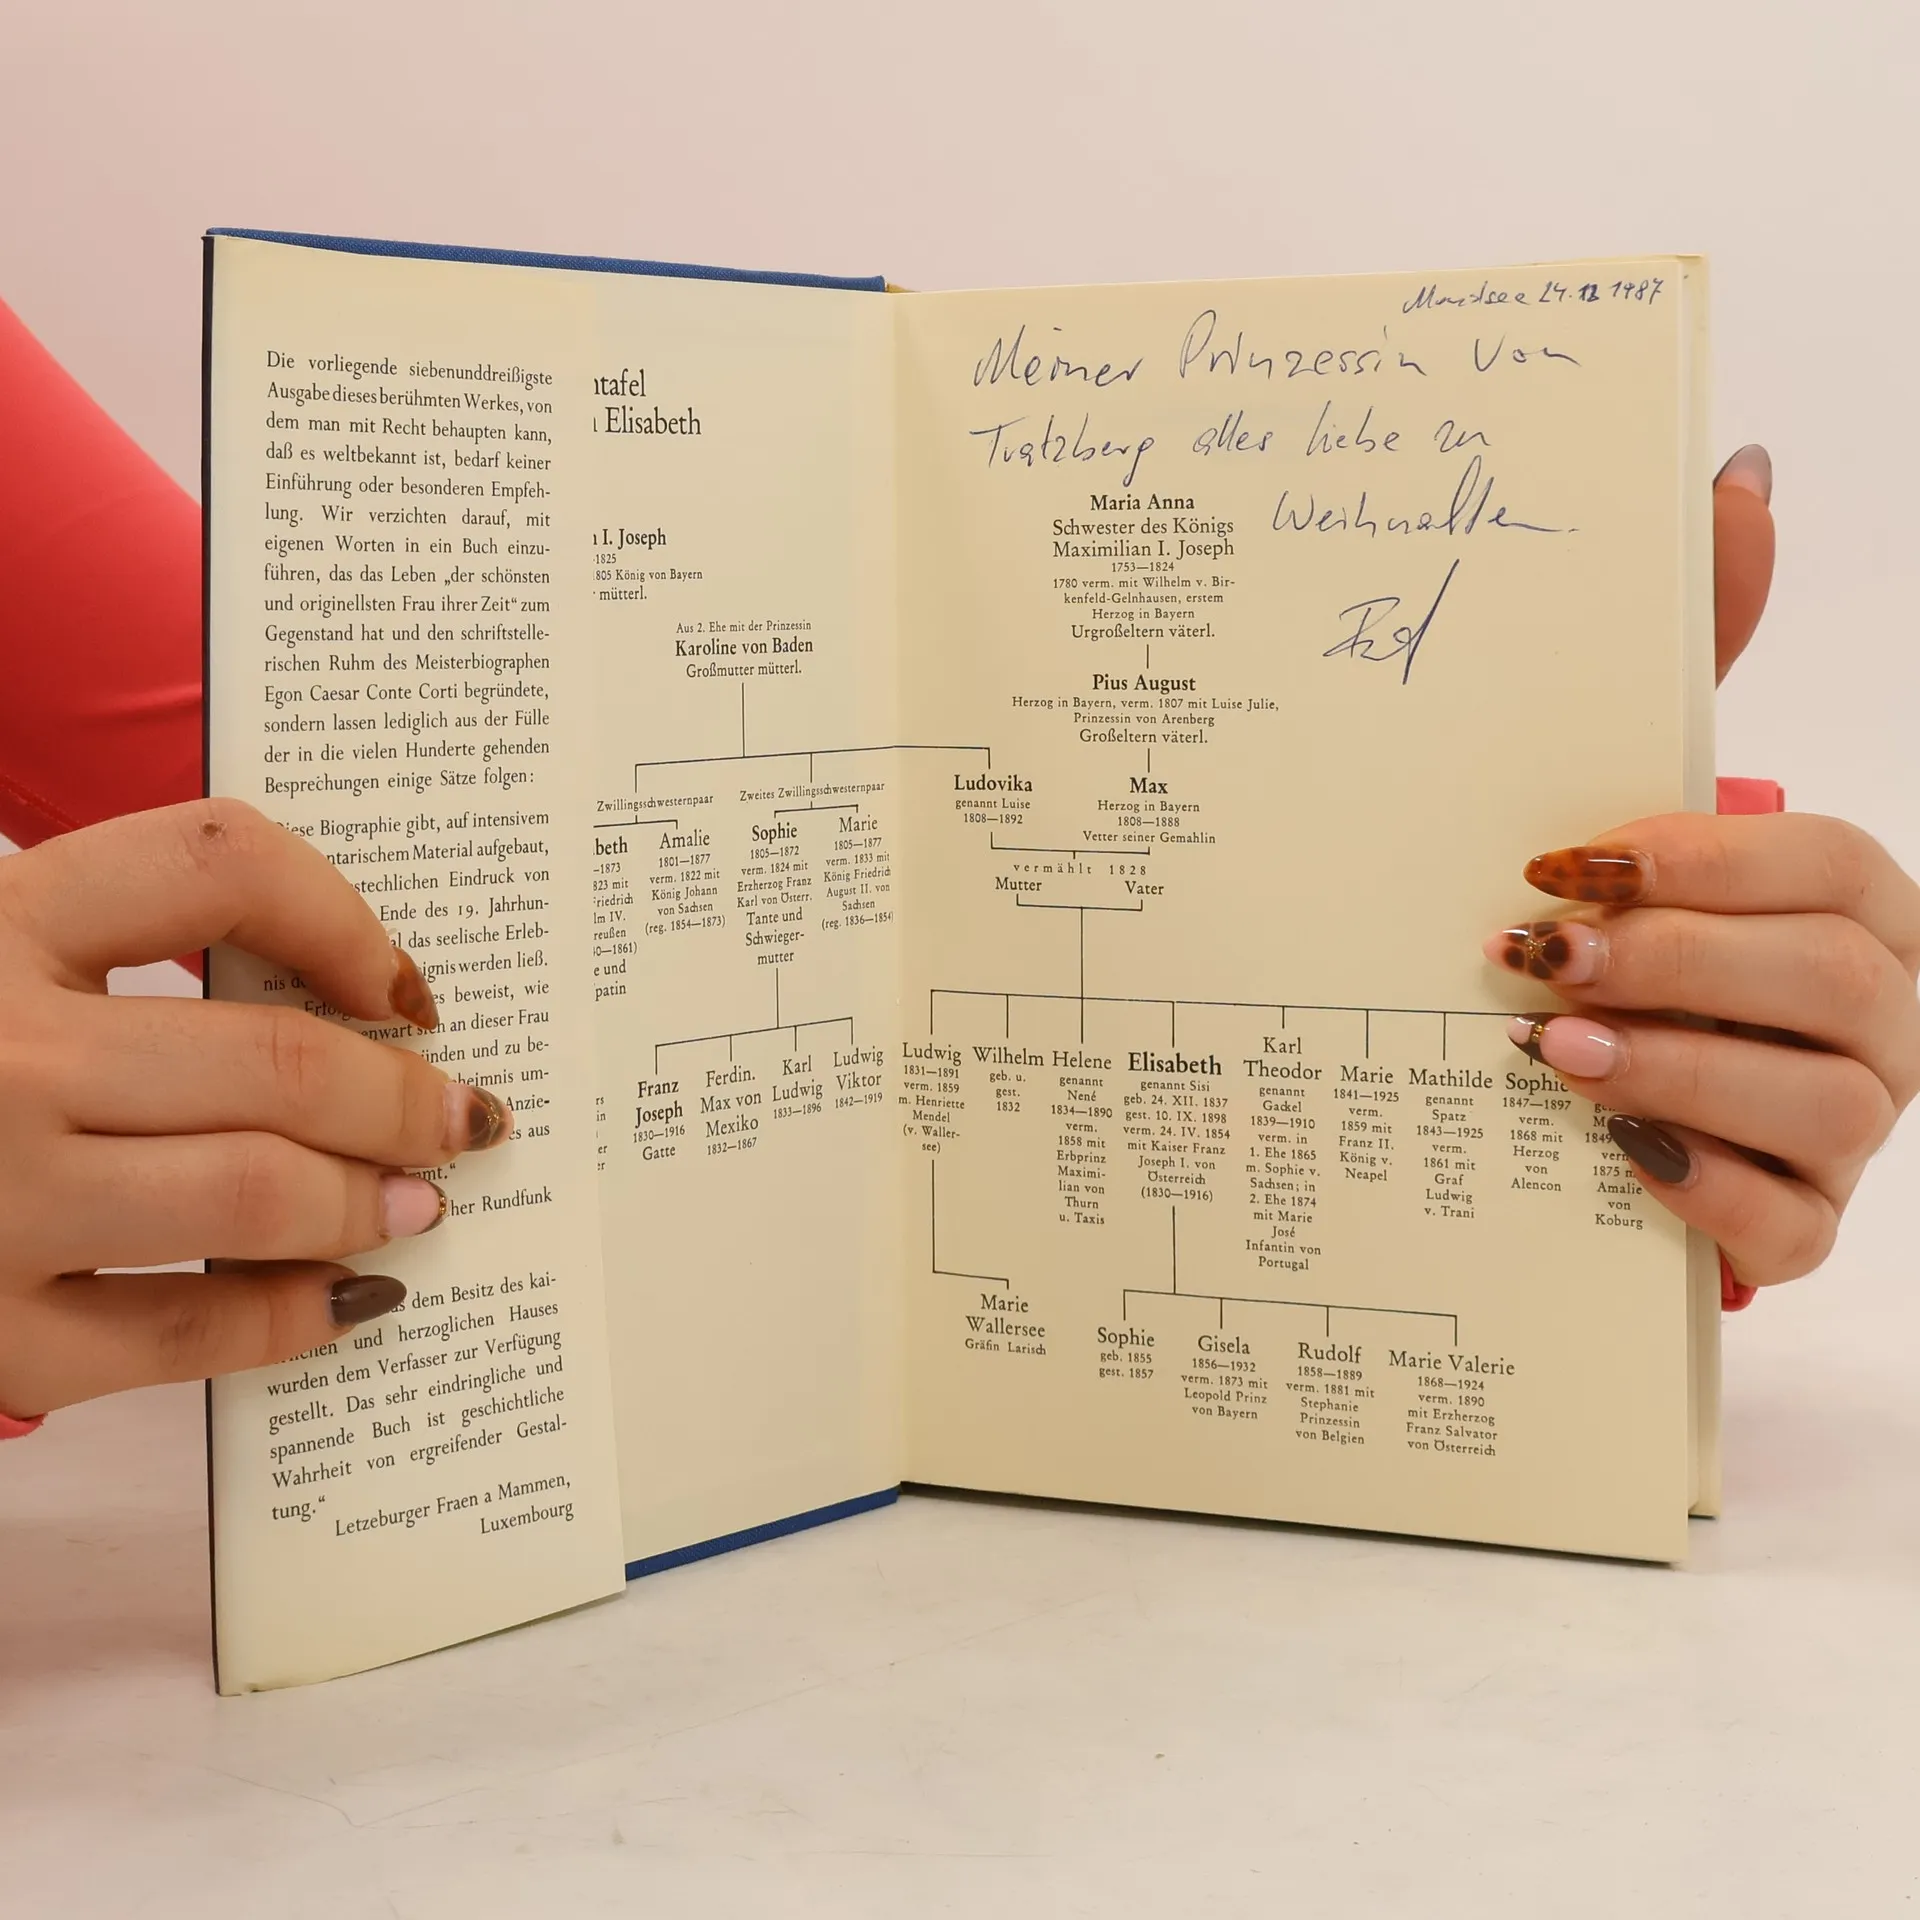 Die vorliegende siebenunddreißigste
Ausgabe dieses berühmten Werkes, von
dem man mit Recht behaupten kann,
daß es weltbekannt ist, bedarf keiner
Einführung oder besonderen Empfeh-
lung. Wir verzichten darauf, mit
eigenen Worten in ein Buch einzu-
führen, das das Leben „der schönsten
und originellsten Frau ihrer Zeit“ zum
Gegenstand hat und den schriftstelle-
rischen Ruhm des Meisterbiographen
Egon Caesar Conte Corti begründete,
sondern lassen lediglich aus der Fülle
der in die vielen Hunderte gehenden
Besprechungen einige Sätze folgen:
iese Biographie gibt, auf intensivem
ntarischem Material aufgebaut,
stechlichen Eindruck von
Ende des 19. Jahrhun-
al das seelische Erleb-
nis
ignis werden ließ.
es beweist, wie
enwart sich an dieser Frau
ünden und zu be-
heimnis um-
Anzie-
es aus
mt.“
her Rundfunk
dem Besitz des kai-
und herzoglichen Hauses
wurden dem Verfasser zur Verfügung
gestellt. Das sehr eindringliche und
spannende Buch ist geschichtliche
Wahrheit von ergreifender Gestal-
tung.“
Letzeburger Fraen a Mammen,
Luxembourg
ntafel
Elisabeth
I. Joseph
-1825
805 König von Bayern
mütterl.
Aus 2. Ehe mit der Prinzessin
Karoline von Baden
Großmutter mütterl.
Zwillingsschwesternpaar
Zweites Zwillingsschwesternpaar
beth
—1873
823 mit
riedrich
lm IV.
reußen
40—1861)
e und
patin
Amalie
1801—1877
verm. 1822 mit
König Johann
von Sachsen
(reg. 1854—1873)
Sophie
1805—1872
verm. 1824 mit
Erzherzog Franz
Karl von Österr.
Tante und
Schwieger-
mutter
Marie
1805—1877
verm. 1833 mit
König Friedrich
August II. von
Sachsen
(reg. 1836—1854)
Franz
Joseph
1830—1916
Gatte
Ferdin.
Max von
Mexiko
1832—1867
Karl
Ludwig
1833—1896
Ludwig
Viktor
1842—1919
Mondsee 24.12 1987
Meiner Prinzessin von
Tratzberg alles liebe zu
Weihnachten.
Maria Anna
Schwester des Königs
Maximilian I. Joseph
1753—1824
1780 verm. mit Wilhelm v. Bir-
kenfeld-Gelnhausen, erstem
Herzog in Bayern
Urgroßeltern väterl.
Pius August
Herzog in Bayern, verm. 1807 mit Luise Julie,
Prinzessin von Arenberg
Großeltern väterl.
Ludovika
genannt Luise
1808—1892
Max
Herzog in Bayern
1808—1888
Vetter seiner Gemahlin
vermählt 1828
Mutter Vater
Ludwig
1831—1891
verm. 1859
m. Henriette
Mendel
(v. Waller-
see)
Wilhelm
geb. u.
gest.
1832
Helene
genannt
Nené
1834—1890
verm.
1858 mit
Erbprinz
Maximi-
lian von
Thurn
u. Taxis
Elisabeth
genannt Sisi
geb. 24. XII. 1837
gest. 10. IX. 1898
verm. 24. IV. 1854
mit Kaiser Franz
Joseph I. von
Österreich
(1830—1916)
Karl
Theodor
genannt
Gackel
1839—1910
verm. in
1. Ehe 1865
m. Sophie v.
Sachsen; in
2. Ehe 1874
mit Marie
José
Infantin von
Portugal
Marie
1841—1925
verm.
1859 mit
Franz II.
König v.
Neapel
Mathilde
genannt
Spatz
1843—1925
verm.
1861 mit
Graf
Ludwig
v. Trani
Sophie
1847—1897
verm.
1868 mit
Herzog
von
Alencon
1849
verm
1875 m.
Amalie
von
Koburg
Marie
Wallersee
Gräfin Larisch
Sophie
geb. 1855
gest. 1857
Gisela
1856—1932
verm. 1873 mit
Leopold Prinz
von Bayern
Rudolf
1858—1889
verm. 1881 mit
Stephanie
Prinzessin
von Belgien
Marie Valerie
1868—1924
verm. 1890
mit Erzherzog
Franz Salvator
von Österreich